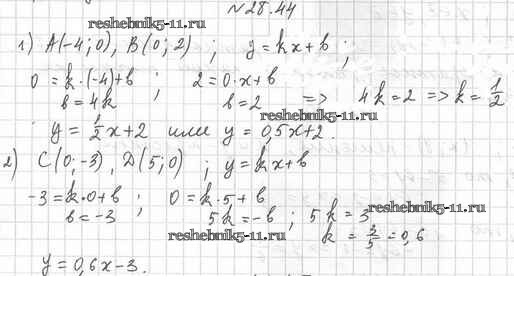 №28.44
reshebnik5-11.ru
1) A(-4; 0), B(0; 2) ; y = kx + b ;
0 = k·(-4)+b ; 2 = 0·x+b
b = 4k b = 2 => 4k = 2 => k = 1/2
reshebnik5-11.ru
y = 1/2 x + 2 или y = 0,5x + 2.
2) C(0; -3), D(5; 0) ; y = kx + b
-3 = k·0 + b ; 0 = k·5 + b
b = -3 5k = -b ; 5k = 3
reshebnik5-11.ru
reshebnik5-11.ru
k = 3/5 = 0,6
y = 0,6x - 3.